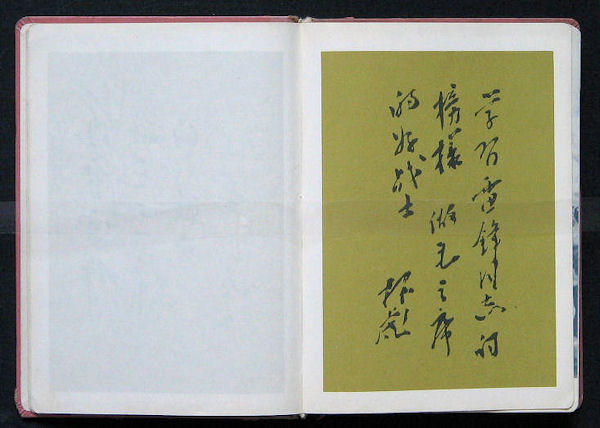 学习雷鋒同志的
榜樣 做毛主席
的好战士
林彪